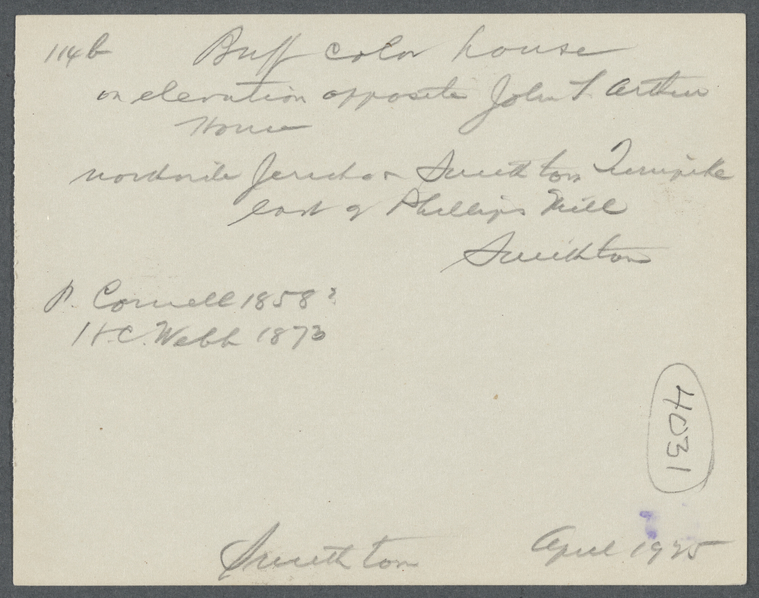 114b Buff color house
on elevation opposite John S. Arthur
House
northside Jericho & Smithtown Turnpike
east of Phillips Mill
Smithtown
P. Cornell 1858?
H.C. Webb 1873
4031
Smithtown April 1925